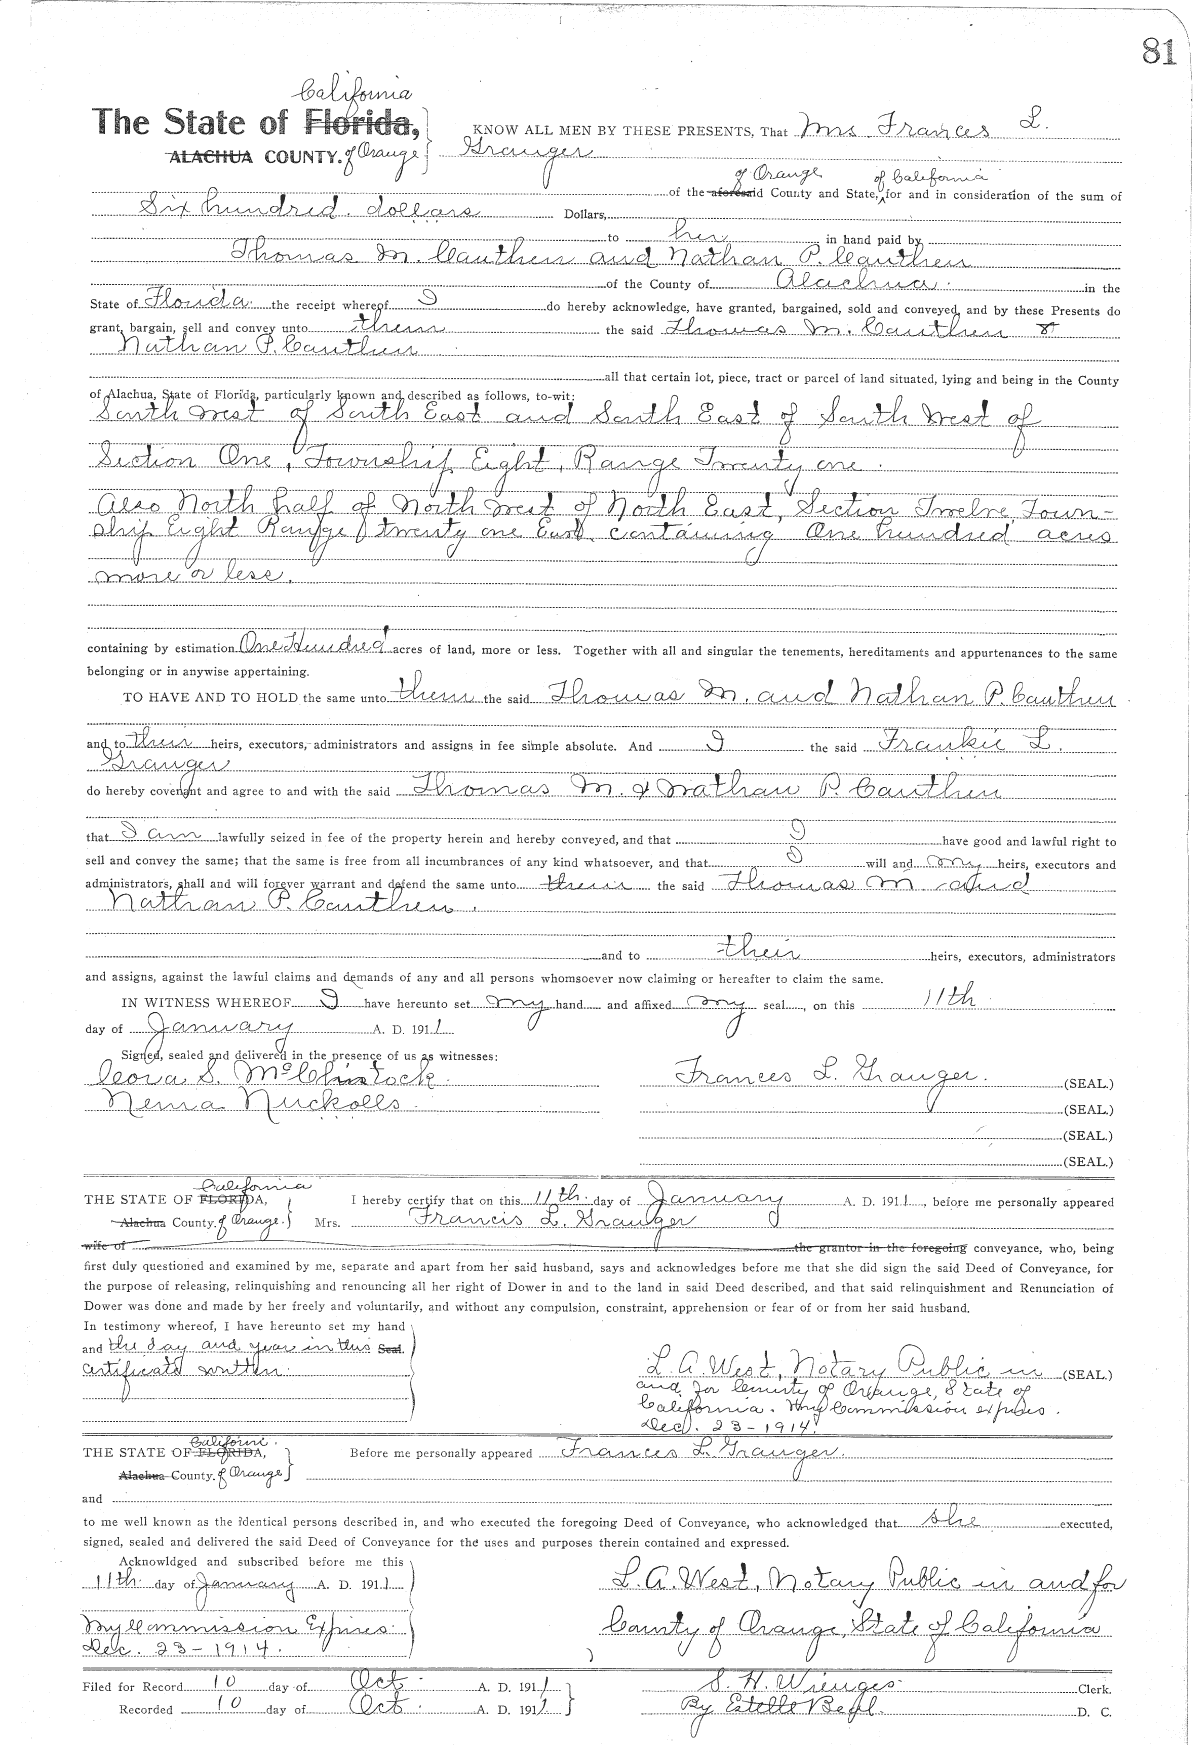 81
California
The State of Florida,
ALACHUA COUNTY. of Orange
KNOW ALL MEN BY THESE PRESENTS, That Mrs Frances L.
Granger
of Orange of California
of the aforesaid County and State, for and in consideration of the sum of
Six hundred dollars Dollars,
to her in hand paid by
Thomas M. Cauthen and Nathan P. Cauthen
of the County of Alachua in the
State of Florida the receipt whereof I do hereby acknowledge, have granted, bargained, sold and conveyed, and by these Presents do
grant, bargain, sell and convey unto them the said Thomas M. Cauthen &
Nathan P. Cauthen
all that certain lot, piece, tract or parcel of land situated, lying and being in the County
of Alachua, State of Florida, particularly known and described as follows, to-wit:
South West of South East and South East of South West of
Section One, Township Eight, Range Twenty one.
Also North half of North West of North East, Section Twelve, Town-
ship Eight Range twenty one East, containing One hundred acres
more or less.
containing by estimation One Hundred acres of land, more or less. Together with all and singular the tenements, hereditaments and appurtenances to the same
belonging or in anywise appertaining.
TO HAVE AND TO HOLD the same unto them the said Thomas M. and Nathan P. Cauthen
and to their heirs, executors, administrators and assigns in fee simple absolute. And I the said Frankie L.
Granger
do hereby covenant and agree to and with the said Thomas M. & Nathan P. Cauthen
that I am lawfully seized in fee of the property herein and hereby conveyed, and that I have good and lawful right to
sell and convey the same; that the same is free from all incumbrances of any kind whatsoever, and that I will and my heirs, executors and
administrators, shall and will forever warrant and defend the same unto their the said Thomas M and
Nathan P. Cauthen.
and to their heirs, executors, administrators
and assigns, against the lawful claims and demands of any and all persons whomsoever now claiming or hereafter to claim the same.
IN WITNESS WHEREOF I have hereunto set my hand and affixed my seal, on this 11th
day of January A. D. 1911
Signed, sealed and delivered in the presence of us as witnesses:
Cora S. McClintock Frances L. Granger. (SEAL.)
Nema Nuckolls (SEAL.)
(SEAL.)
(SEAL.)
California
THE STATE OF FLORIDA, I hereby certify that on this 11th. day of January A. D. 1911, before me personally appeared
Alachua County. of Orange. Mrs. Francis L. Granger
wife of the grantor in the foregoing conveyance, who, being
first duly questioned and examined by me, separate and apart from her said husband, says and acknowledges before me that she did sign the said Deed of Conveyance, for
the purpose of releasing, relinquishing and renouncing all her right of Dower in and to the land in said Deed described, and that said relinquishment and Renunciation of
Dower was done and made by her freely and voluntarily, and without any compulsion, constraint, apprehension or fear of or from her said husband.
In testimony whereof, I have hereunto set my hand
and the day and year in this Seal.
certificate written.
L. A. West, Notary Public in (SEAL.)
and for County of Orange, State of
California. My Commission expires.
Dec. 23-1914.
Californi.
THE STATE OF FLORIDA, Before me personally appeared Frances L. Granger.
Alachua County. of Orange
and
to me well known as the identical persons described in, and who executed the foregoing Deed of Conveyance, who acknowledged that she executed,
signed, sealed and delivered the said Deed of Conveyance for the uses and purposes therein contained and expressed.
Acknowldged and subscribed before me this
11th. day of January A. D. 1911 L. A. West, Notary Public in and for
My Commission Expires County of Orange, State of California
Dec. 23-1914.
Filed for Record 10 day of Oct. A. D. 1911 S. H. Wienges. Clerk.
Recorded 10 day of Oct. A. D. 1911 By Estelle D. C.